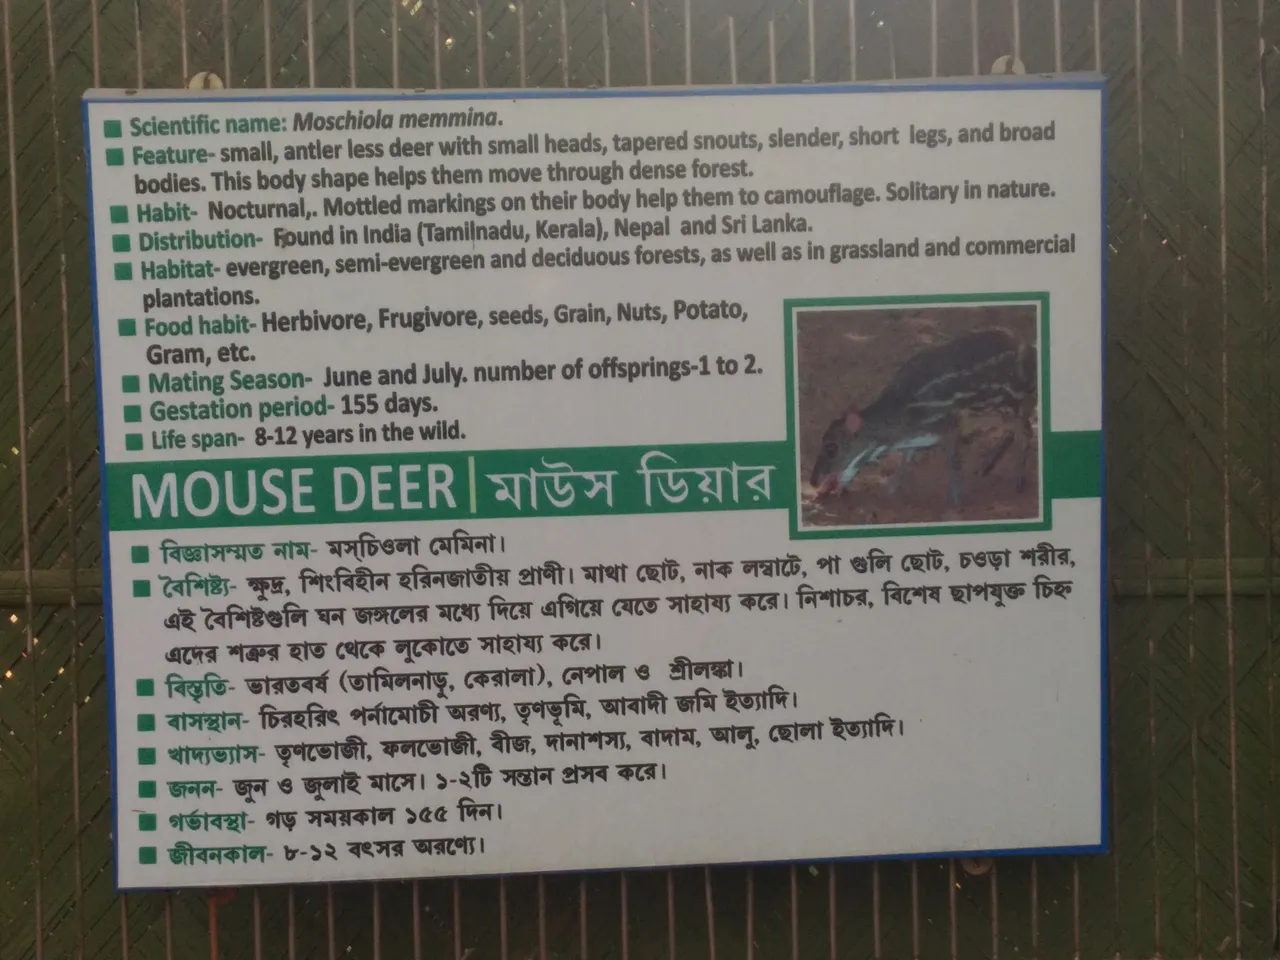 Scientific name: Moschiola memmina.
Feature- small, antler less deer with small heads, tapered snouts, slender, short legs, and broad
bodies. This body shape helps them move through dense forest.
Habit- Nocturnal,. Mottled markings on their body help them to camouflage. Solitary in nature.
Distribution- Found in India (Tamilnadu, Kerala), Nepal and Sri Lanka.
Habitat- evergreen, semi-evergreen and deciduous forests, as well as in grassland and commercial
plantations.
Food habit- Herbivore, Frugivore, seeds, Grain, Nuts, Potato,
Gram, etc.
Mating Season- June and July. number of offsprings-1 to 2.
Gestation period- 155 days.
Life span- 8-12 years in the wild.
MOUSE DEER | মাউস ডিয়ার
বিজ্ঞাসম্মত নাম- মস্‌চিওলা মেমিনা।
বৈশিষ্ট্য- ক্ষুদ্র, শিংবিহীন হরিনজাতীয় প্রাণী। মাথা ছোট, নাক লম্বাটে, পা গুলি ছোট, চওড়া শরীর,
এই বৈশিষ্টগুলি ঘন জঙ্গলের মধ্যে দিয়ে এগিয়ে যেতে সাহায্য করে। নিশাচর, বিশেষ ছাপযুক্ত চিহ্ন
এদের শত্রুর হাত থেকে লুকোতে সাহায্য করে।
বিস্তৃতি- ভারতবর্ষ (তামিলনাড়ু, কেরালা), নেপাল ও শ্রীলঙ্কা।
বাসস্থান- চিরহরিৎ পর্নামোচী অরণ্য, তৃণভূমি, আবাদী জমি ইত্যাদি।
খাদ্যভ্যাস- তৃণভোজী, ফলভোজী, বীজ, দানাশস্য, বাদাম, আলু, ছোলা ইত্যাদি।
জনন- জুন ও জুলাই মাসে। ১-২টি সন্তান প্রসব করে।
গর্ভাবস্থা- গড় সময়কাল ১৫৫ দিন।
জীবনকাল- ৮-১২ বৎসর অরণ্যে।